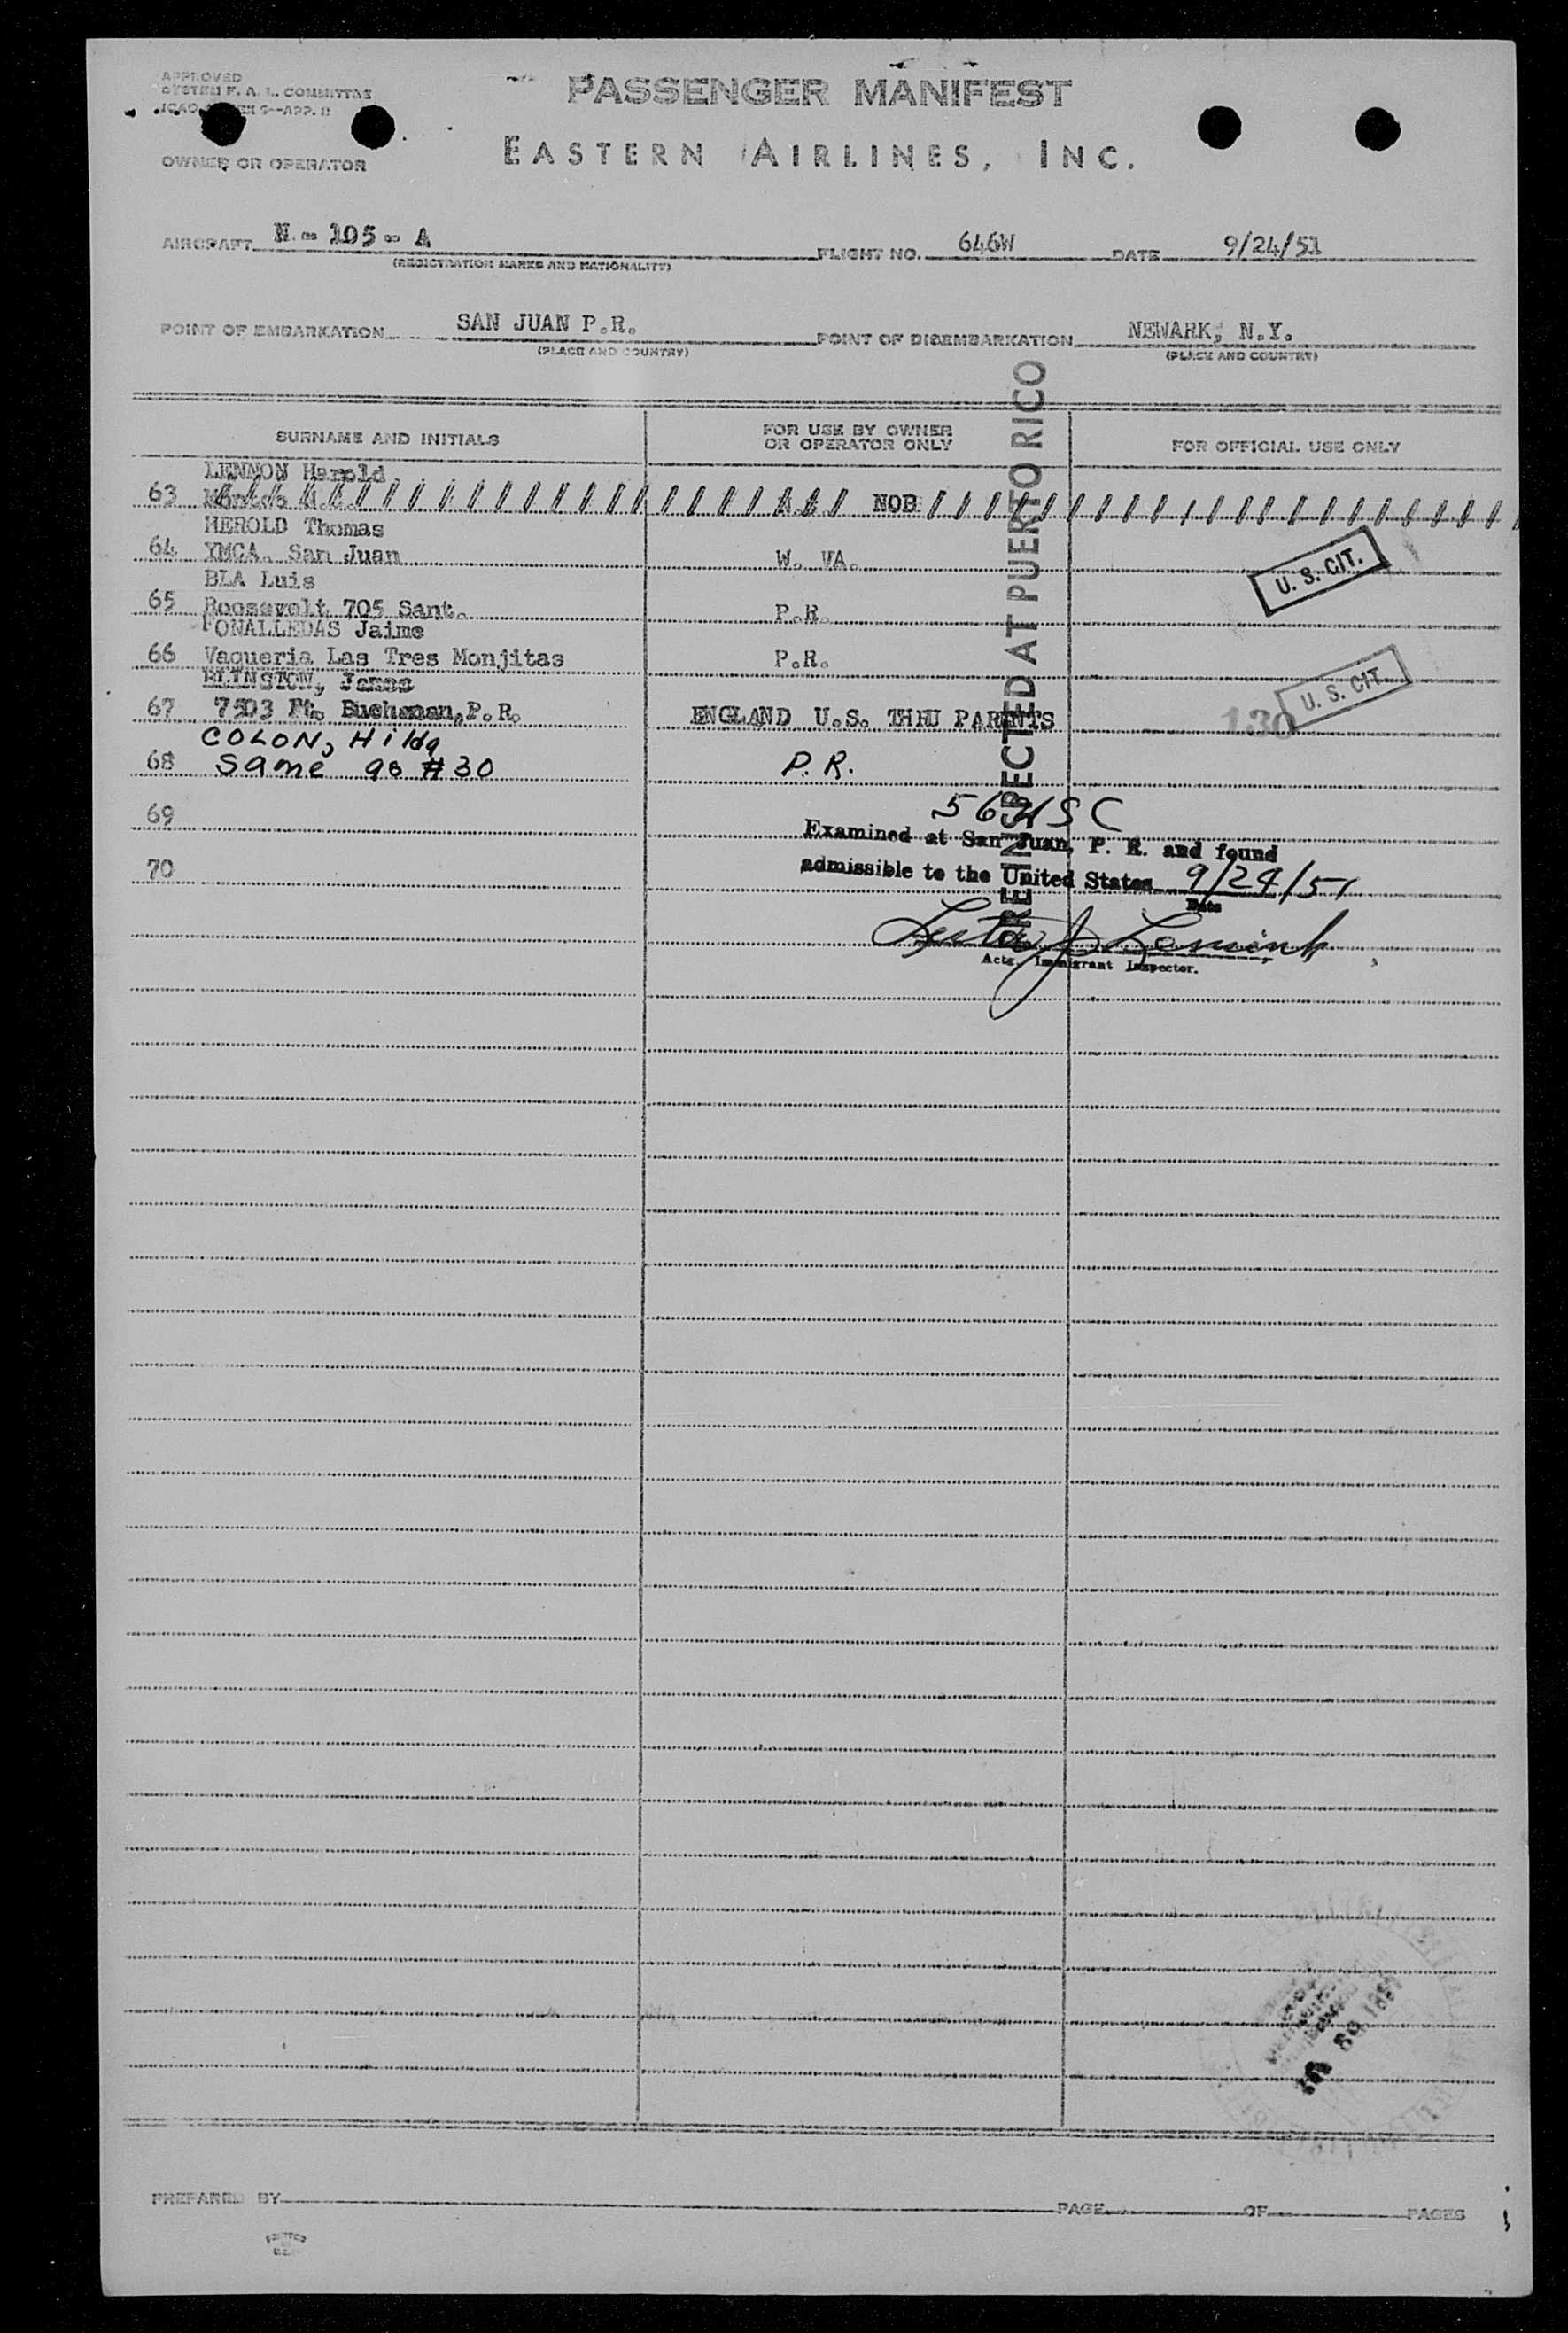 APPROVED
SYSTEM F. A. L. COMMITTEE
PASSENGER MANIFEST
OWNER OR OPERATOR
EASTERN AIRLINES, INC.
AIRCRAFT N.- 105- A
(REGISTRATION MARKS AND NATIONALITY)
FLIGHT NO. 646W
DATE 9/24/51
POINT OF EMBARKATION SAN JUAN P.R.
(PLACE AND COUNTRY)
POINT OF DISEMBARKATION NEWARK, N.Y.
(PLACE AND COUNTRY)
SURNAME AND INITIALS
FOR USE BY OWNER
OR OPERATOR ONLY
FOR OFFICIAL USE ONLY
PREINSPECTED AT PUERTO RICO
LENNON Harold
63 NOB
HEROLD Thomas
64 YMCA. San Juan W. VA.
U. S. CIT.
BLA Luis
65 Roosevelt 705 Sant. P.R.
FONALLEDAS Jaime
66 Vaqueria Las Tres Monjitas P.R.
U. S. CIT.
ELINGTON, James
67 7503 Ft. Buchanan, P.R. ENGLAND U.S. THRU PARENTS
130
COLON, Hilda
68 Same as #30 P.R.
69
56 USC
Examined at San Juan, P. R. and found
admissible to the United States 9/24/51
Date
70
Actg. Immigrant Inspector.
PREPARED BY
PAGE OF PAGES